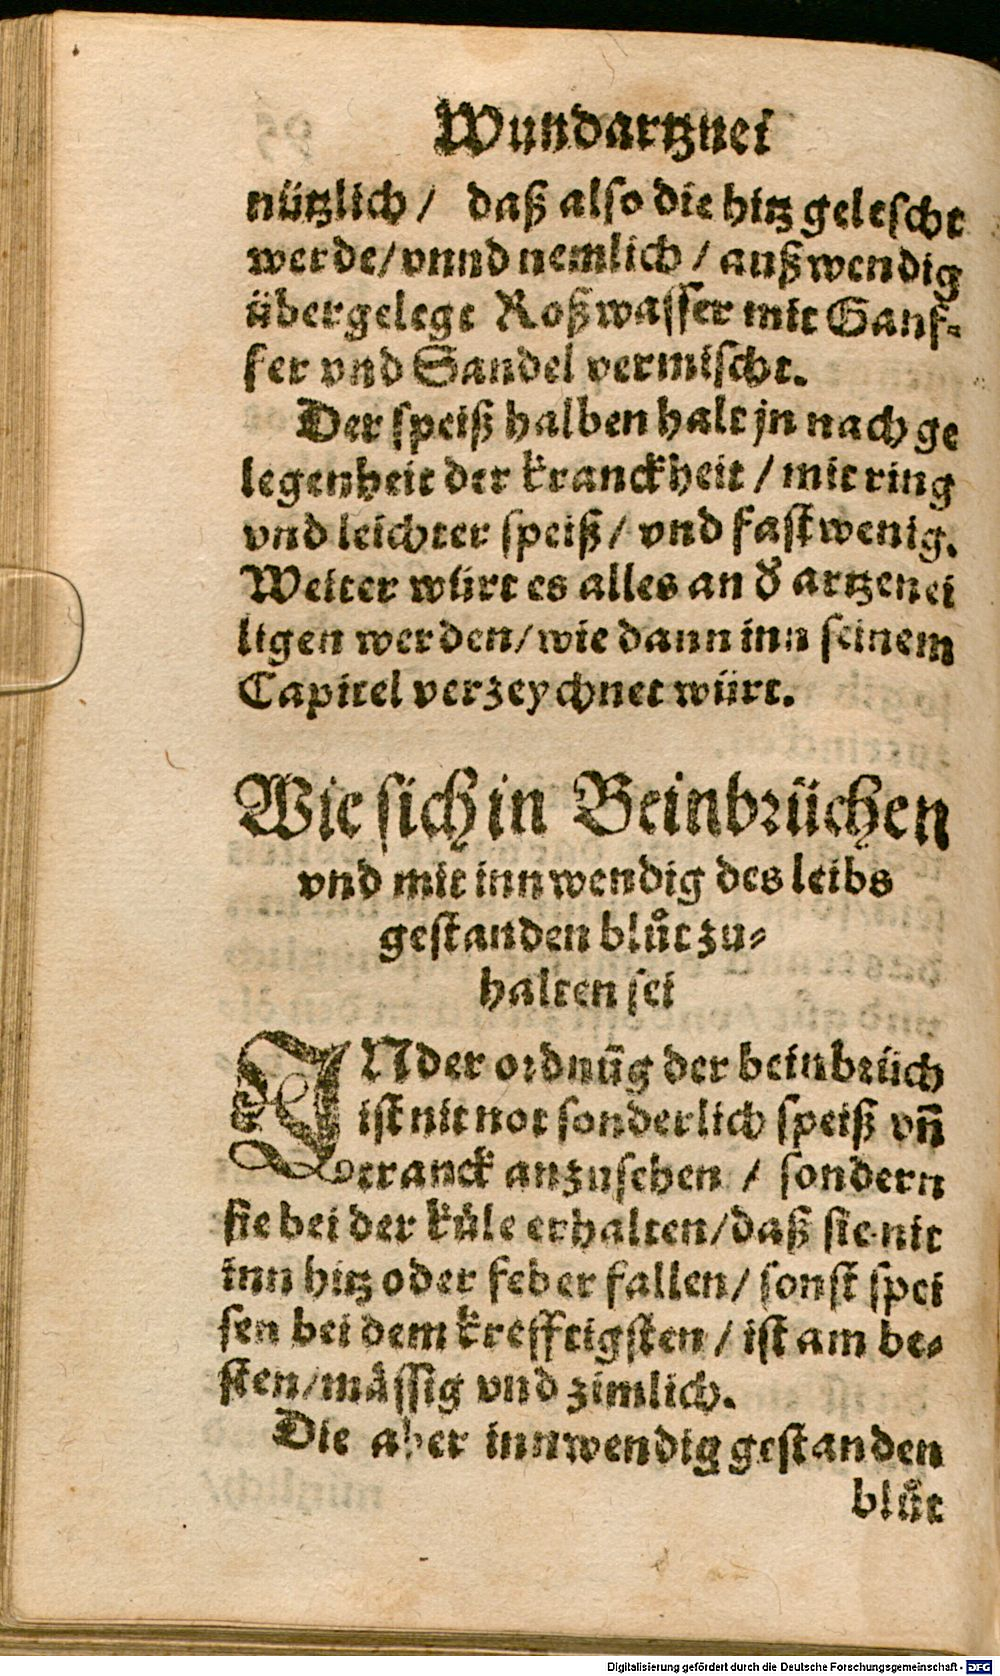 Wundartznei
nützlich / daß also die hitz gelescht
werde/vnnd nemlich / außwendig
übergelegt Roßwasser mit Ganf⸗
fer vnd Sandel vermischt.
Der speiß halben halt jn nach ge
legenheit der kranckheit / mit ring
vnd leichter speiß/ vnd fast wenig.
Weiter würt es alles an d̕ artzenei
ligen werden/wie dann inn seinem
Capitel verzeychnet würt.
Wie sich in Beinbrüchen
vnd mit innwendig des leibs
gestanden blůt zu⸗
halten sei
IN der ordnūg der beinbrüch
ist nit not sonderlich speiß vn̄
tranck anzusehen / sondern
sie bei der küle erhalten/daß sie nit
inn hitz oder feber fallen/ sonst spei
sen bei dem krefftigsten / ist am be⸗
sten/mässig vnd zimlich.
Die aber innwendig gestanden
blůt
Digitalisierung gefördert durch die Deutsche Forschungsgemeinschaft - DFG